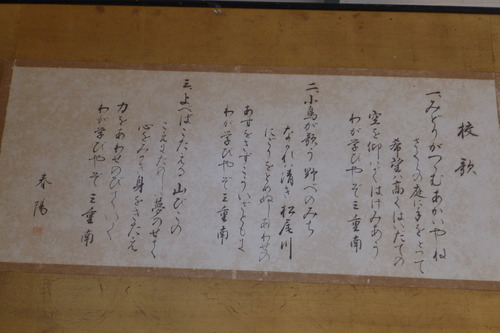 校歌
一、みどりがつつむあかいやね
さくらの庭に手をとって
希望は高くはいたての
空を仰いではげみあう
わが学びやぞ三重南
二、小鳥が歌う野べのみち
ながれ清き松尾川
わが学びやぞ三重南
三、よべばこたえる山びこの
こえもたのし夢のせて
心をみがき身をきたえ
力をあわせのびてゆく
わが学びやぞ三重南
春陽